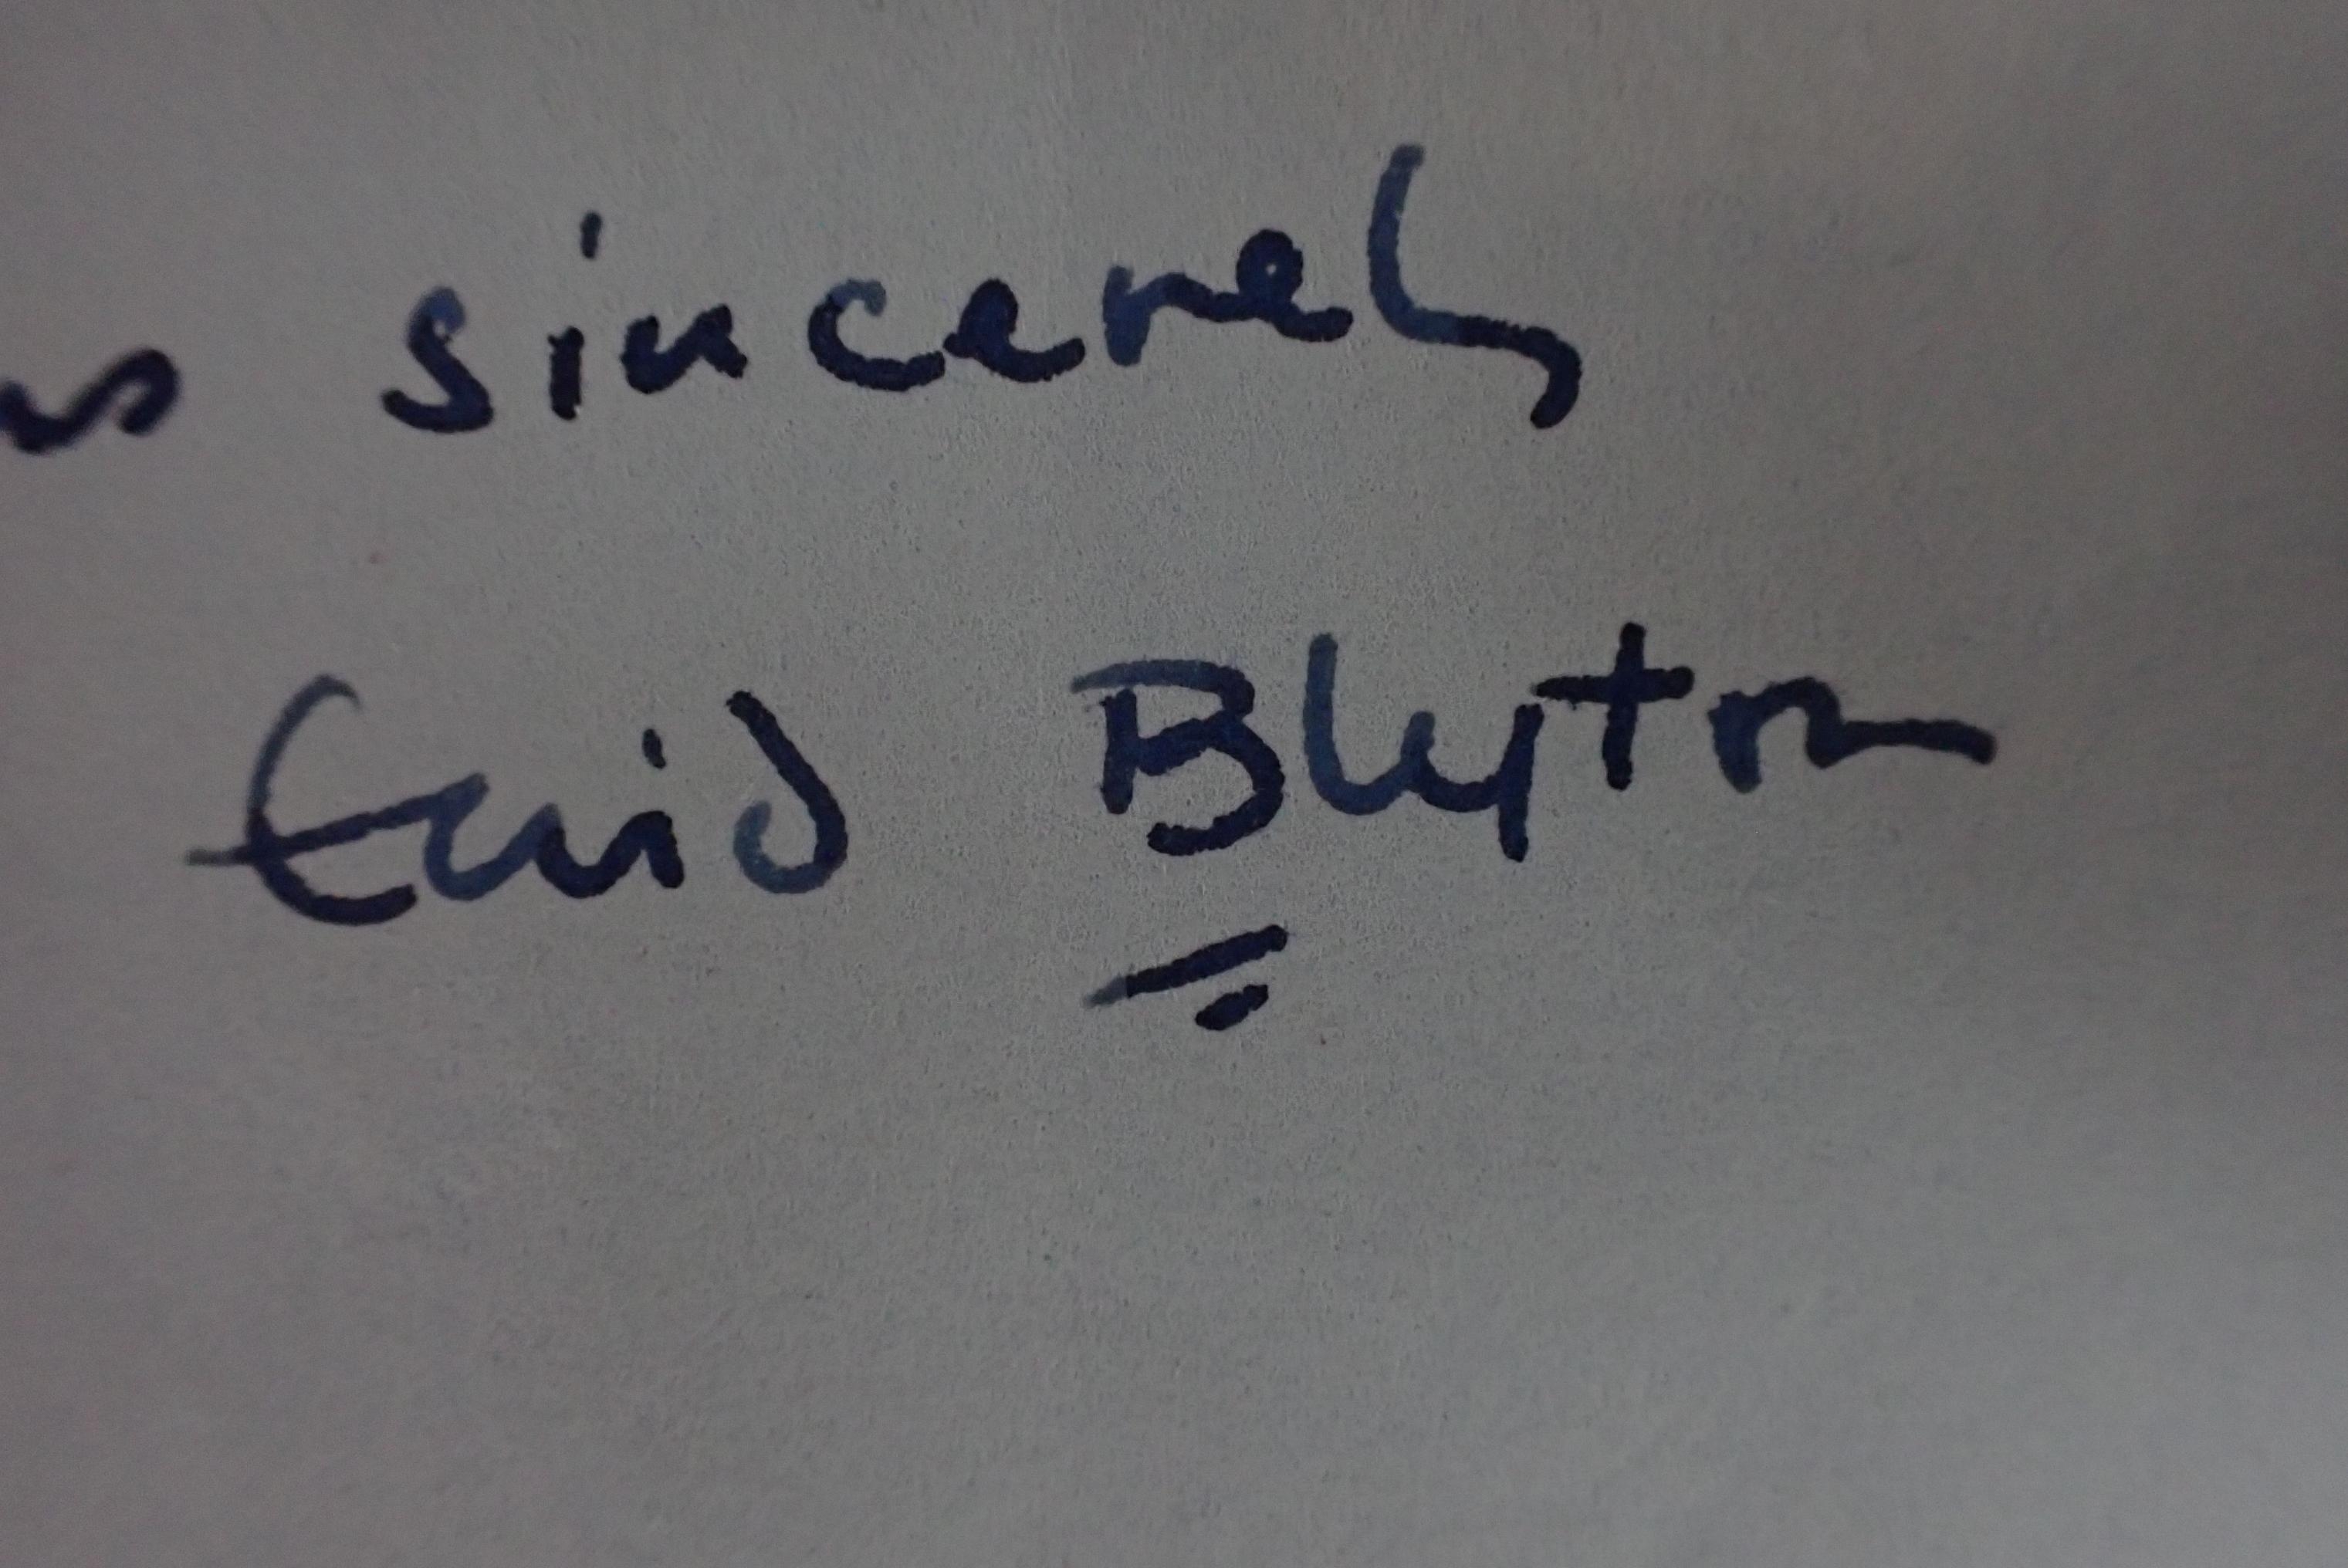 sincerely
Enid Blyton